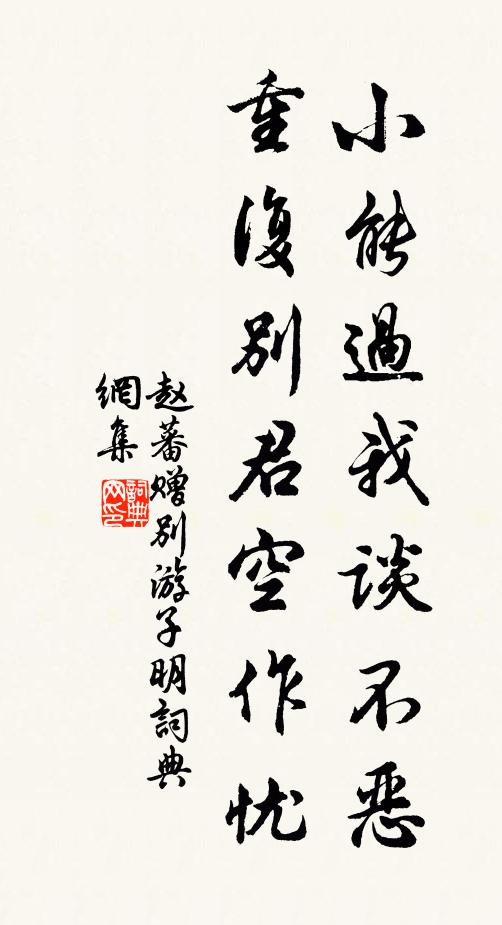 小能過我談不惡
重復別君空作忧
赵蕃赠别游子明詞典
網集
詞典
网印